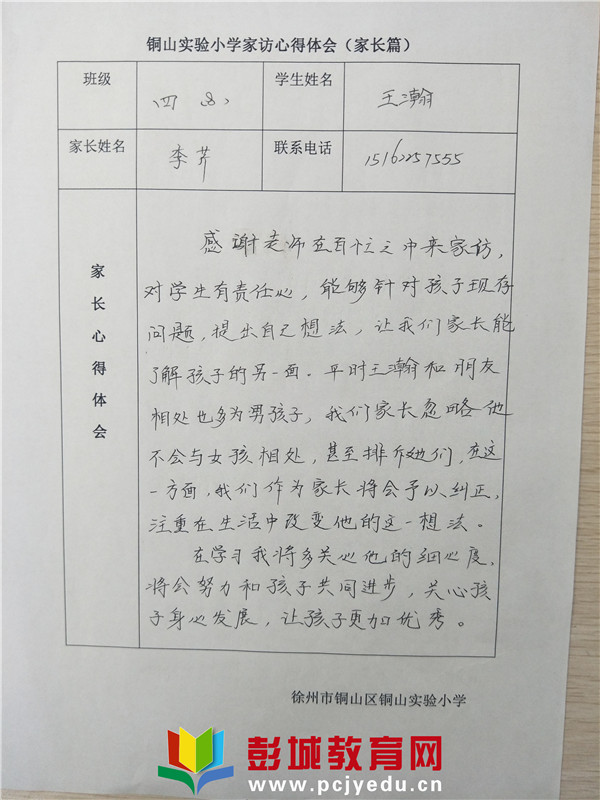 铜山实验小学家访心得体会（家长篇）
班级 四 学生姓名 王瀚
家长姓名 李芹 联系电话 15162257555
家长心得体会
感谢老师在百忙之中来家访，
对学生有责任心，能够针对孩子现存
问题，提出自己想法，让我们家长能
了解孩子的另一面。平时王瀚和朋友
相处也多为男孩子，我们家长忽略他
不会与女孩相处，甚至排斥她们，在这
一方面，我们作为家长将会予以纠正，
注重在生活中改变他的这一想法。
在学习我将多关心他的细心度，
将会努力和孩子共同进步，关心孩
子身心发展，让孩子更加优秀。
徐州市铜山区铜山实验小学
彭城教育网
www.pcjyedu.cn